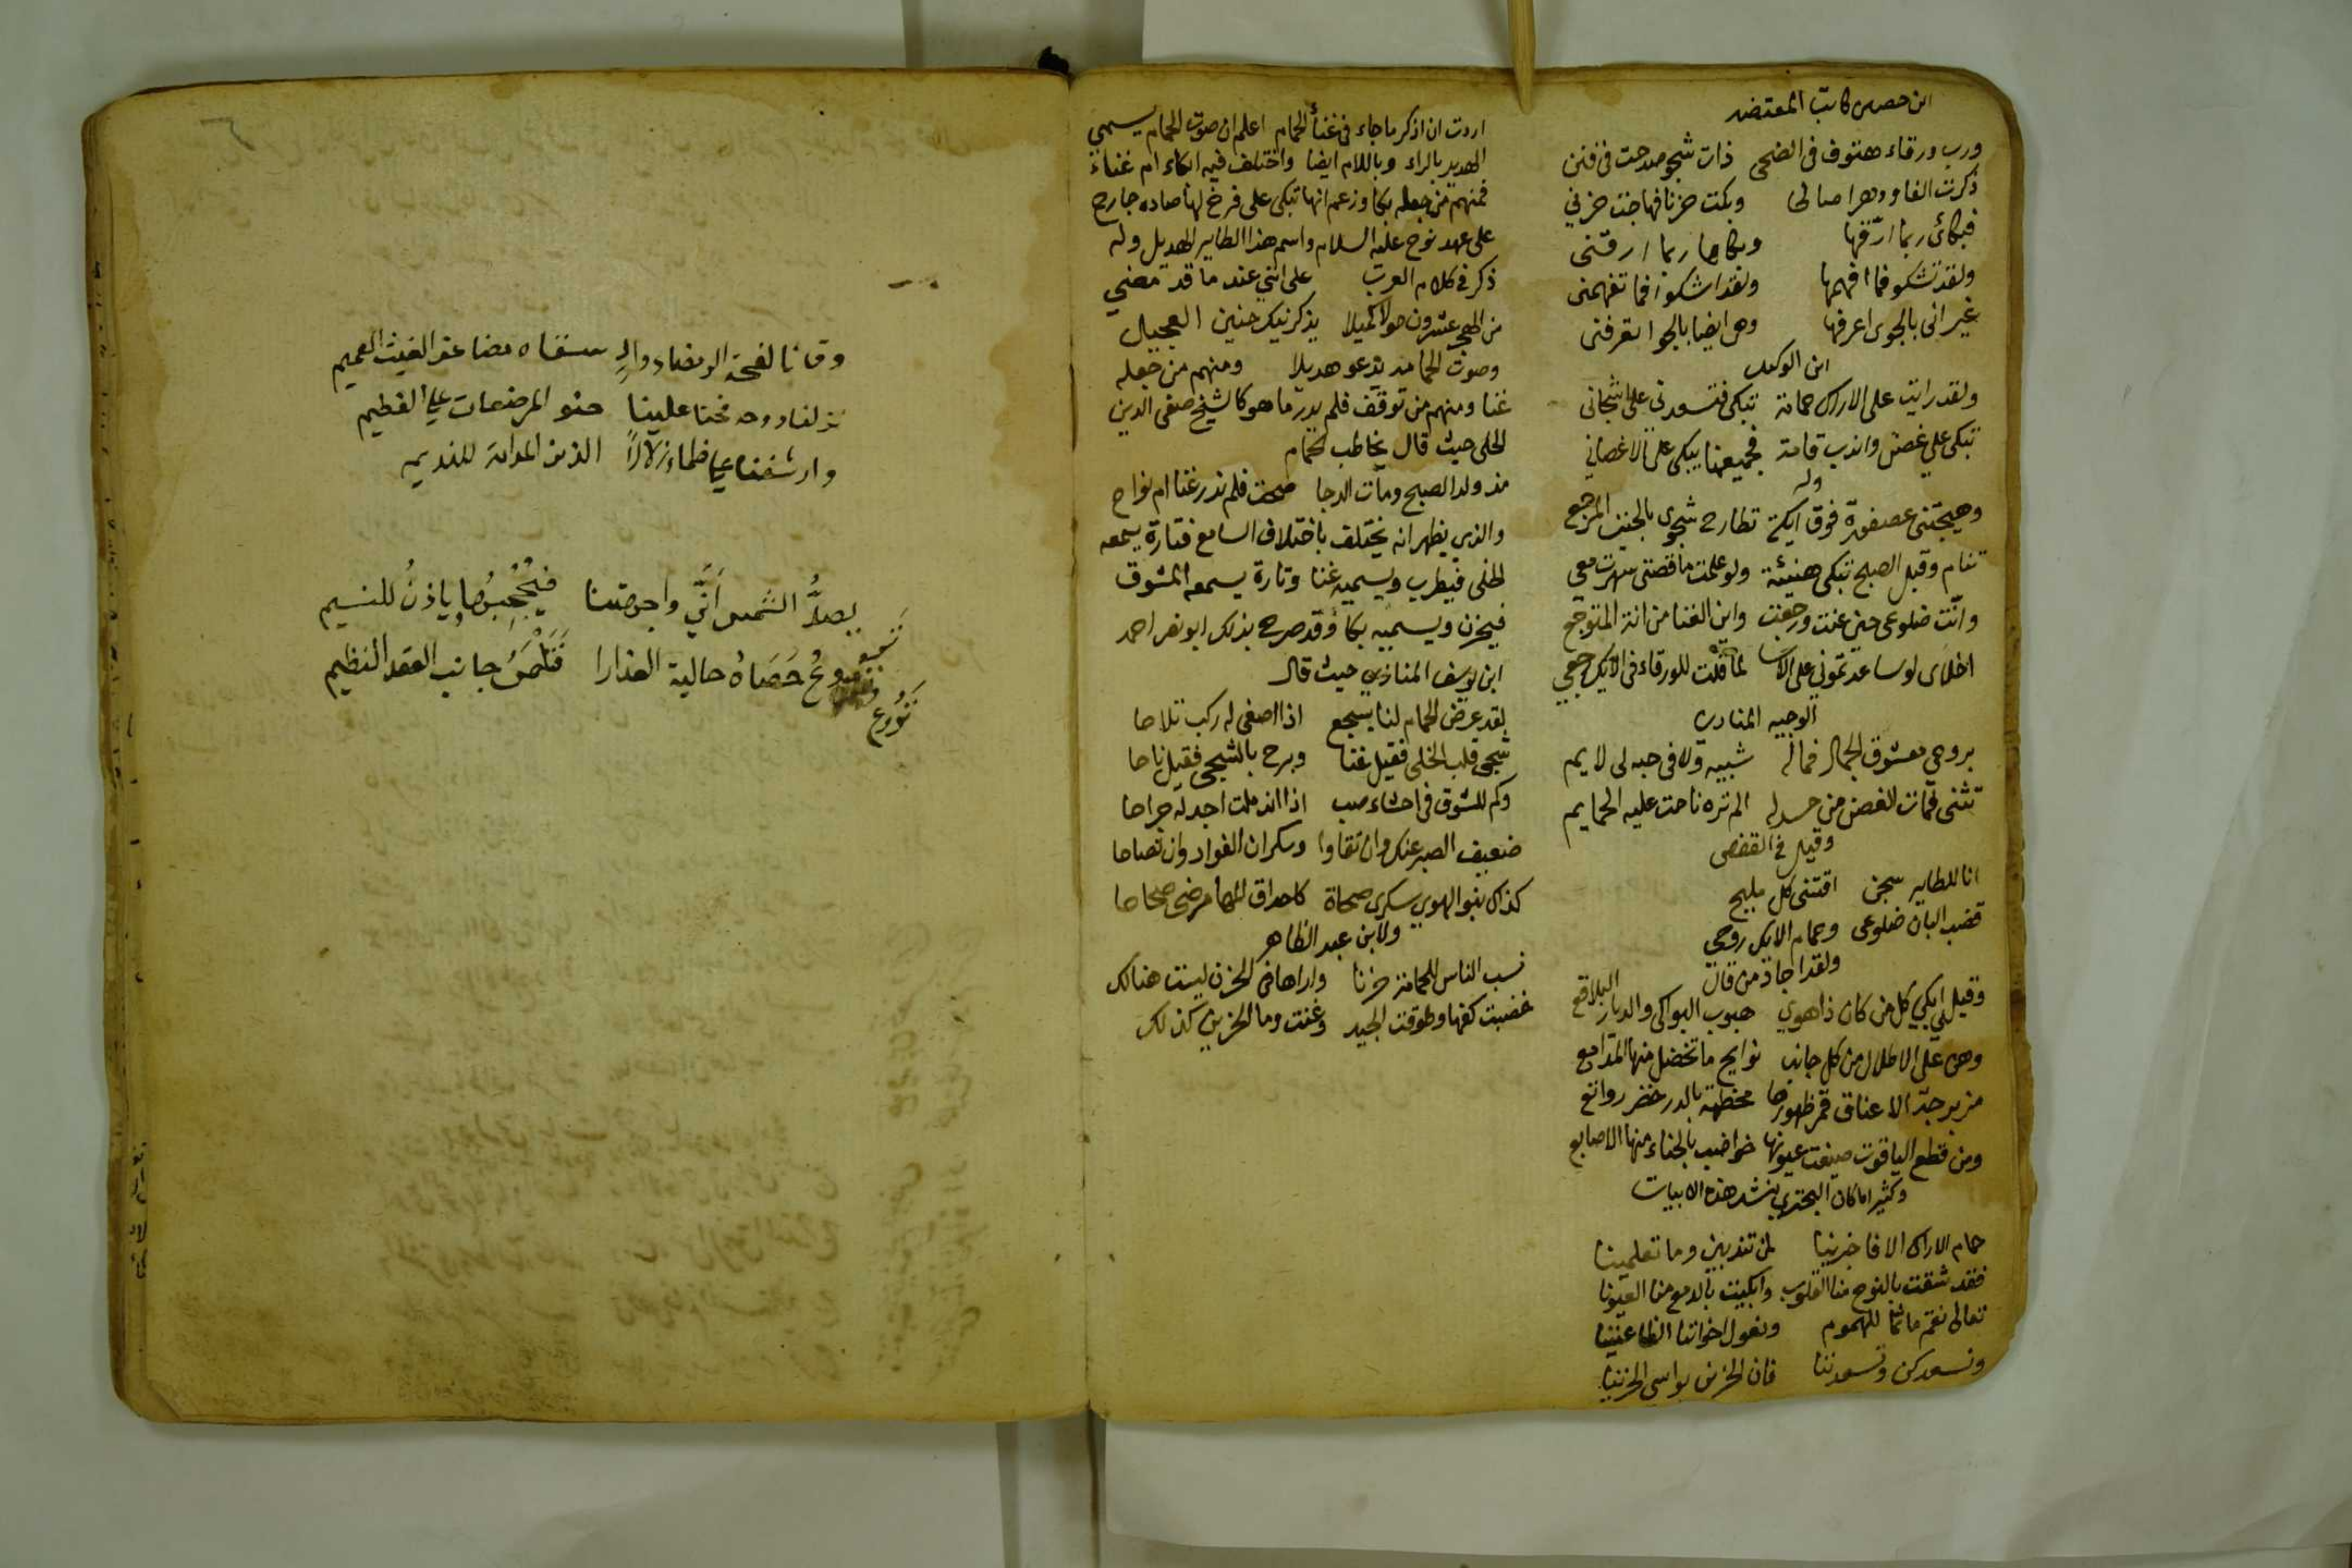 ابن حصن كاتب المعتضد
ورب ورقاء هتوف في الضحى ذات شجو صدحت في فنن
ذكرت الفا ودهرا صالحا وبكت حزنا فهاجت حزني
فبكائى ربما ارقها وبكاها ربما ارقنى
ولقد تشكو فما افهمها ولقد اشكو فما تفهمنى
غير انى بالجوى اعرفها وهى ايضا بالجوا تعرفنى
ابن الوكيل
ولقد رايت على الاراك حمامة تبكى فتسعدنى على اشجانى
تبكى على غصن واندب قامة فجميعنا يبكى على الاغصاني
وله
وهيجتنى عصفورة فوق ايكة تطارح شجوى بالحنين المرجع
تنام وقبل الصبح تبكى هنيئة ولو علمت ما قصتى سهرت معي
وانّت ضلوعى حين غنت ورجعت واين الغنا من انة المتوجع
اخلاى لو ساعدتمونى على الاسا لما قلت للورقاء فى الايك رجعي
الوجيه المناوي
بروحى معشوق الجمال فماله شبيه ولا فى حبه لى لايم
تثنى فمات الغصن من حسد له الم تره ناحت عليه الحمايم
وقيل في القفص
انا للطاير سجن اقتنى كل مليح
قضب البان ضلوعى وحمام الايك روحى
ولقد اجاد من قال
وقبلي ابكي كل من كان ذا هوي هبوب البواكى والديار البلاقع
وهن على الاطلال من كل جانب نوايح ما تخضل منها المدامع
مزبرجة الاعناق نمر ظهورها مخطمة بالدر خضر روائع
ومن قطع الياقوت صيغت عيونها خواضب بالحناء منها الاصابع
وكثيرا ما كان البحتري ينشد هذه الابيات
حمام الاراك الا فاخبرينا لمن تندبين وما تعلمينا
فقد شقت بالنوح منا القلوب وابكيت بالدمع منا العيونا
تعالى نقم ماتما للهموم ونعول اخواننا الظاعنينا
ونسعدكن وتسعدننا فان الحزين يواسى الحزينا
اردت ان اذكر ما جاء فى غناء الحمام اعلم ان صوت الحمام يسمي
الهدير بالراء وباللام ايضا واختلف فيه ابكاء ام غناء
فمنهم من جعله بكا وزعم انها تبكى على فرخ لها صاده جارح
على عهد نوح عليه السلام واسم هذا الطاير الهديل وله
ذكر في كلام العرب على انني عند ما قد مضي
من الهجر عشرون حولا كميلا يذكرنيك حنين العجول
وصوت الحمامه تدعو هديلا ومنهم من جعله
غنا ومنهم من توقف فلم يدر ما هو كالشيخ صفى الدين
الحلى حيث قال يخاطب الحمام
مذ ولد الصبح ومات الدجا صحت فلم ندر غنا ام نواح
والذي يظهر انه يختلف باختلاف السامع فتارة يسمعه
الخلى فيطرب ويسميه غنا وتارة يسمعه المشوق
فيحزن ويسميه بكا وقد صرح بذلك ابو نصر احمد
ابن يوسف المنازي حيث قال
لقد عرض الحمام لنا بسجع اذا اصغى له ركب تلاحا
شجى قلب الخلى فقيل غنا وبرح بالشجى فقيل ناحا
وكم للشوق فى احشاء صب اذا اندملت اجد له جراحا
ضعيف الصبر عنك وان تقاوا وسكران الفواد وان تصاحا
كذاك بنو الهوي سكرى صحاة كاحداق المها مرضى صحاحا
ولابن عبد الظاهر
نسب الناس للحمامة حزنا واراها فى الحزن ليست هنالك
خضبت كفها وطوقت الجيد وغنت وما الحزين كذلك
وقانا لفحة الرمضاء وادٍ سقاه مضاعف الغيث العميم
نزلنا دوحه فحنا علينا حنو المرضعات على الفطيم
وارشفنا على ظماء زلالاً الذ من المدامة للنديم
يصدُّ الشمس أنَّى واجهتنا فيَحْجُبُها وياذنُ للنسيم
تروعُ حَصَاهُ حالية العذارا فتلمسُ جانب العقد النظيم
تَرُوع